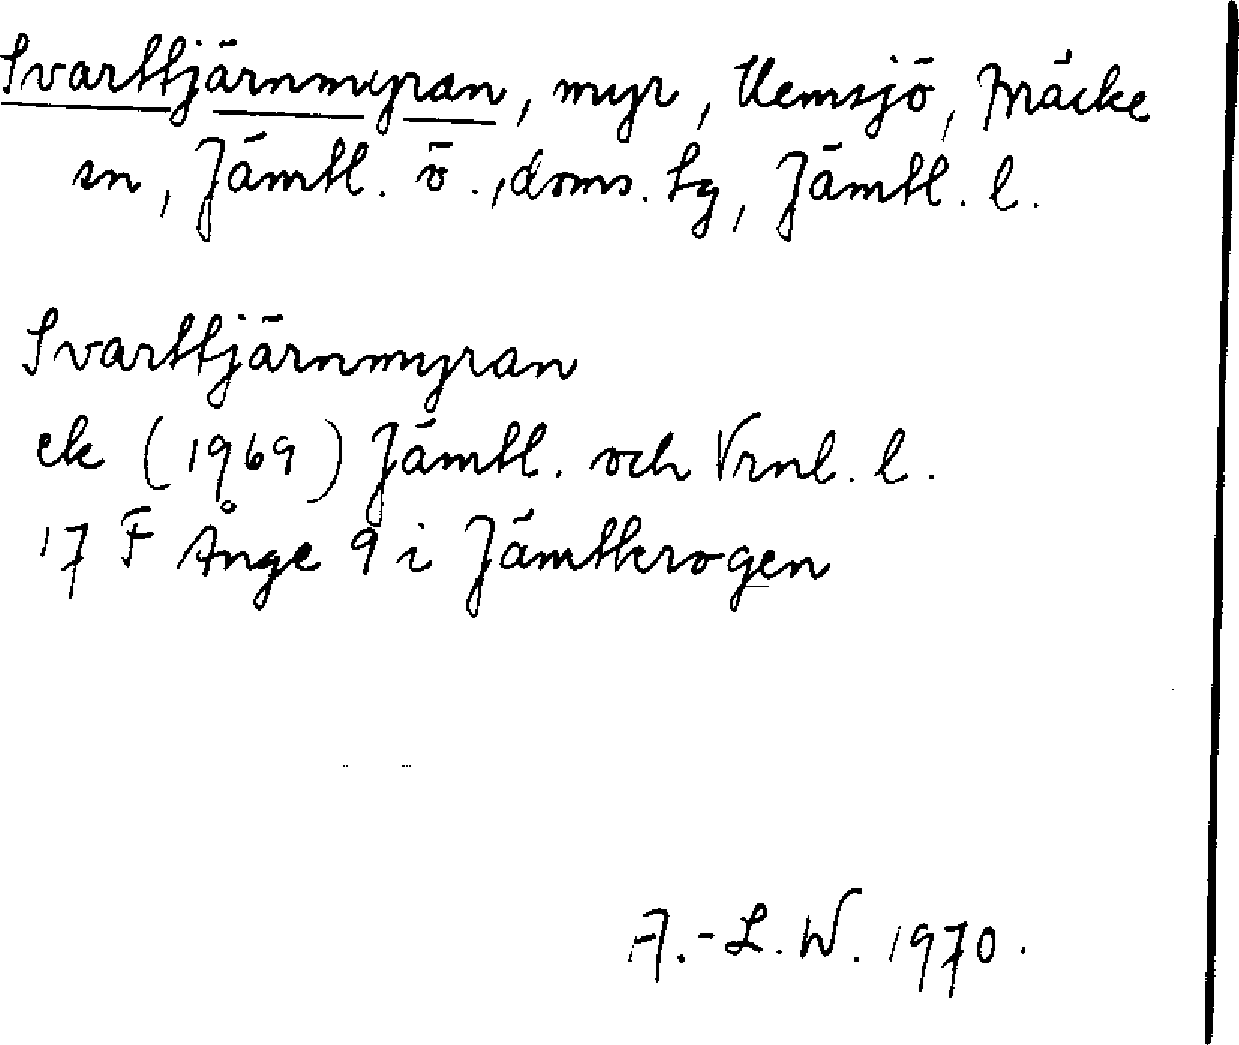 Svarttjärnmyran, myr, Uemsjö, Bräcke
sn, Jämtl. ö., doms. sg, Jämtl. l.
Svarttjärnmyran
ek (1969) Jämtl. och Vrnl. l.
17 F Ånge 9 i Jämtkrogen
A.-L. W. 1970.